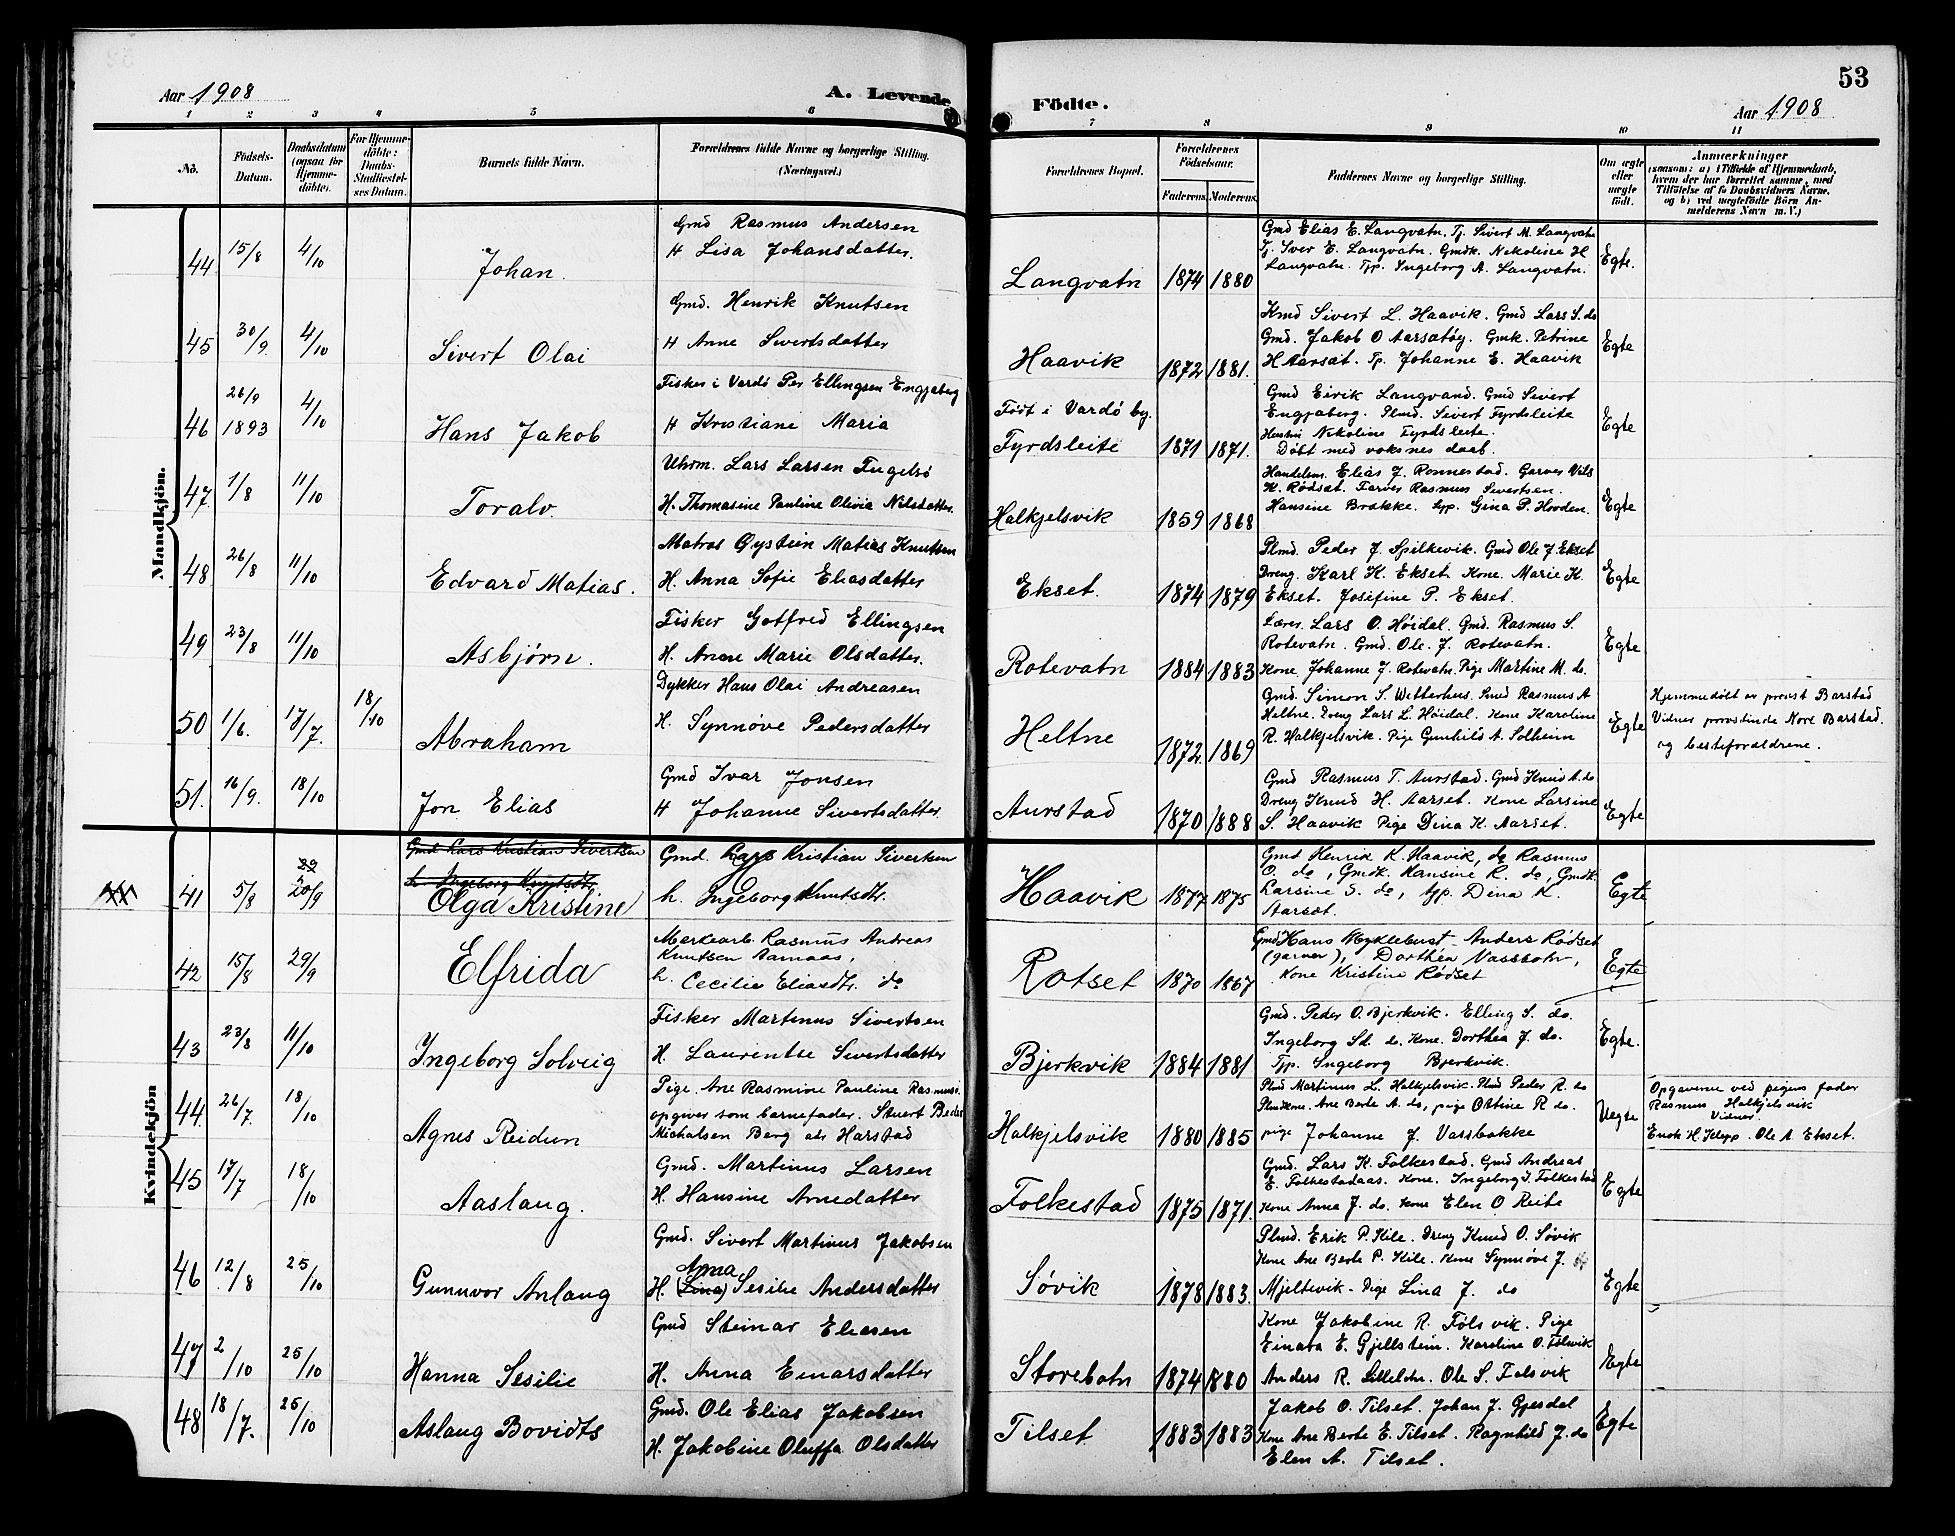 Aar 1908
A. Levende
Födte.
53
Aar 1908
1 2 3 4 5 6 7 8 9 10 11
No.
Födsels-Datum.
Daabsdatum (ogsaa for Hjemme-döbte).
For Hjemme-döbte: Daabs-Stadfæstel-ses Datum.
Barnets fulde Navn.
Forældrenes fulde Navne og borgerlige Stilling. (Næringsvei.)
Forældrenes Bopæl.
Forældrenes Födselsaar. Faderens. Moderens.
Faddernes Navne og borgerlige Stilling.
Om ægte eller uægte födt.
Anmærkninger
(saasom: a) i Tilfælde af Hjemmedaab, hvem der har forrettet samme, med Tilföielse af to Daabsvidners Navne, og b) ved uægtefödte Börn Anmelderens Navn m. V.)
Mandkjön.
44 15/8 4/10 Johan.
Gmd Rasmus Andersen
H Lisa Johansdatter.
Langvatn 1874 1880
Gmd Elias E. Langvatn. Tj. Sivert M. Langvatn
Tj. Iver E. Langvatn. Gmdk. Nekoline H
Langvatn. Tjp. Ingeborg A. Langvatn.
Egte.
45 30/9. 4/10 Sivert Olai
Gmd. Henrik Knutsen
H Anne Sivertsdatter
Haavik 1872 1881.
Kmd Sivert L. Haavik. Gmd Lars S. do
Gmd. Jakob O Aarsætøy. Gmk. Petrine
H Aarsæt. Tp. Johanne E. Haavik
Egte
46 26/9 1893 4/10 Hans Jakob
Fisker i Vardö Per Ellingsen Engjaberg
H Kristiane Maria
Født i Vardö by.
Fyrdsleite 1871 1871.
Gmd Eirik Langvand. Gmd Sivert
Engjaberg. Plmd. Sivert Fyrdsleite
Hustru Nekoline Fyrdsleite.
Döbt med voksnes daab.
Egte
47. 1/8 11/10 Toralv.
Uhrm. Lars Larsen Fugelsö
H. Thomasine Pauline Olivia Nilsdatter.
Halkjelsvik 1859 1868
Handelsm. Elias J. Rønnestad. Garver Nils
K. Rødsæt. Farver Rasmus Sivertsen.
Hansine Brakke. Tjp. Gina P. Hovden.
Egte
48 26/8 11/10 Edvard Matias.
Matros Øystein Matias Knutsen
H. Anna Sofie Eliasdatter
Ekset. 1874 1879
Plmd. Peder J. Spilkevik. Gmd Ole J. Ekset
Dreng. Karl K. Ekset. Kone. Marie K.
Ekset. Josefine P. Ekset.
Egte
49 23/8 11/10 Asbjørn.
Fisker Gotfred Ellingsen
H. Anne Marie Olsdatter.
Rotevatn 1884 1883
Lærer. Lars O. Høidal. Gmd. Rasmus S.
Rotevatn. Gmd. Ole. J. Rotevatn.
Kone Johanne J. Rotevatn. Pige Martine M. do.
Egte
50 1/6. 17/7. 18/10 Abraham
Dykker Hans Olai Andreasen
H. Synnøve Pedersdatter
Heltne 1872. 1869
Gmd. Simon S. Wetterhus. Smed Rasmus A
Heltne. Dreng Lars L. Høidal. Kone Karoline
R. Halkjelsvik. Pige Gunhild A. Solheim
Egte
Hjemmedøbt av provst Barstad
Vidner provstinde Nore Barstad.
og besteforældrene.
51. 16/9. 18/10 Jon Elias
Gmd Ivar Jonsen
H Johanne Sivertsdatter.
Aurstad 1870 1888
Gmd Rasmus T. Aurstad. Gmd Knud A. do
Dreng Knud H. Aarset. Kone Larsine
S. Haavik Pige Dina K. Aarset.
Egte
Kvindekjön
Gmd Lars Kristian Sivertsen
h. Ingeborg Knutsdtr.
41 5/8 29 20/9 Olga Kristine
Gmd. Lars Kristian Sivertsen
h. Ingeborg Knutsdtr.
Haavik 1877 1875
Gmd Henrik K. Haavik, do Rasmus
O. do, Gmdk. Hansine R. do, Gmdk.
Larsine S. do, tjp. Dina K.
Aarsæt.
Egte
42 15/8 29/9 Elfrida
Markearb. Rasmus Andreas
Knutsen Aamaas,
h. Cecilie Eliasdtr. do
Rotset 1870 1867
Gmd Hans Myklebust - Anders Rødset
(garver), Dorthea Vassbotn,
Kone Kristine Rødset
Egte
43 23/8 11/10 Ingeborg Solveig
Fisker Martinus Sivertsen
H. Laurentse Sivertsdatter
Bjerkvik 1884 1881
Gmd. Peder O. Bjerkvik. Elling S. do.
Ingeborg Sd. do. Kone. Dorthea J. do.
Tjp. Ingeborg Bjerkvik.
Egte.
44 26/7 18/10 Agnes Reidun
Pige. Ane Rasmine Pauline Rasmusd.
opgiver som barnefader. Stuert Peder
Michalsen Berg adr Harstad
Halkjelsvik 1880 1885
Plmd Martinus L. Halkjelsvik. Plmd Peder R. do
Plmdkone. Ane Berte A. do, pige Ottine R do.
pige Johanne J. Vassbakke
Uegte
Opgaverne ved pigens fader
Rasmus Halkjelsvik
Vidner
Enok H Klepp. Ole A. Ekset.
45 17/7 18/10 Aaslaug.
Gmd. Martinus Larsen
H. Hansine Arnedatter
Folkestad 1875 1871.
Gmd. Lars K. Folkestad. Gmd Andreas
E. Folkestadaas. Kone. Ingeborg I. Folkestad
Kone Anna J. do. Kone Elen O Reite
Egte
46 12/8 25/10 Gunnvor Anlaug
Gmd. Sivert Martinus Jakobsen
Anna
H. (Lina) Sesilie Andersdatter
Søvik 1878 1883.
Plmd. Erik P. Kile. Dreng Knud O. Søvik
Kone Ane Berte P. Kile. Kone Synnøve J.
Mjeltevik - Pige Lina J. do
Egte
47 2/10 25/10 Hanna Sesilie
Gmd Steinar Eliasen
H. Anna Einarsdatter
Storebotn 1874 1880
Kone Jakobine R. Følsvik. Pige
Einara E. Gjellstein. Karoline O. Følsvik
Anders R. Lillebotn. Ole S. Følsvik
Egte
48 18/7. 25/10 Aslaug Bovidts
Gmd. Ole Elias Jakobsen
H. Jakobine Oluffa Olsdatter
Tilset. 1883 1883
Jakob O. Tilset. Johan J. Gjesdal
Kone Ane Berte E. Tilset. Ragnhild J. do
Elen A. Tilset.
Egte